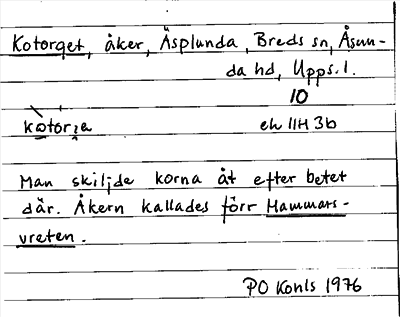 Kotorget, åker, Äsplunda, Breds sn, Åsun-
da hd, Upps. l.
10
kotorʒa ek 11H 3b
Man skiljde korna åt efter betet
där. Åkern kallades förr Hammars-
vreten.
PO Konls 1976